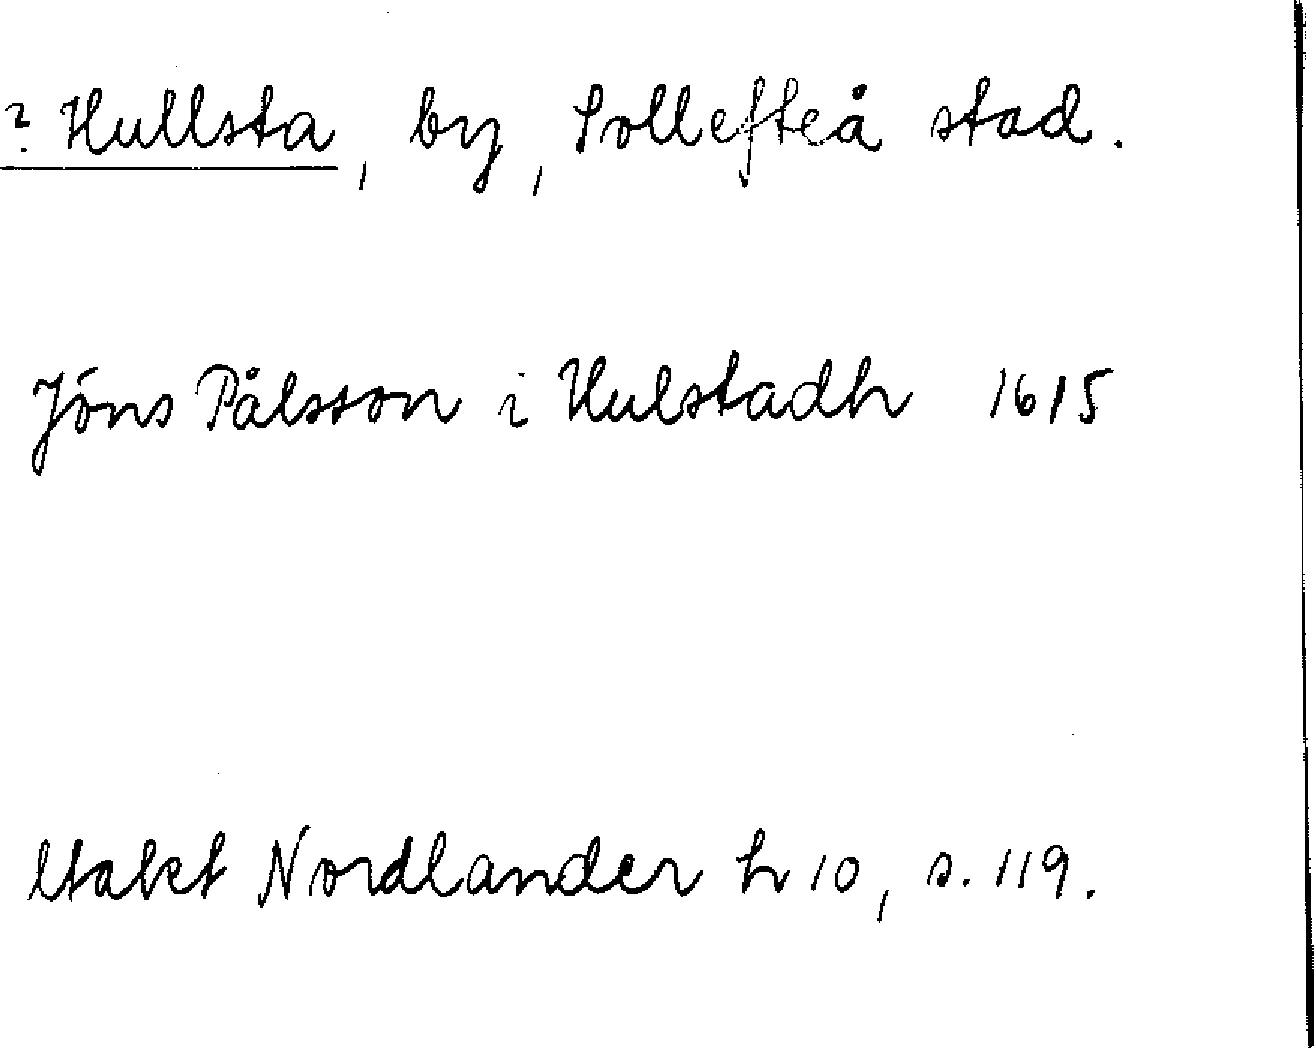 ? Hullsta, by, Sollefteå stad.
Jöns Pålsson i Hulstadh 1615
Nordlander h 10, s. 119.